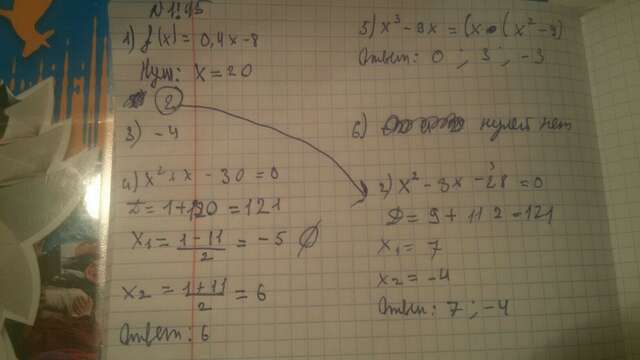 № 1.95
1) f(x) = 0,4x - 8
Нули: x = 20
2
3) -4
4) x² + x - 30 = 0
D = 1 + 120 = 121
x₁ = (1 - 11)/2 = -5 ∅
x₂ = (1 + 11)/2 = 6
Ответ: 6
5) x³ - 9x = (x · (x² - 9)
Ответ: 0 ; 3 ; -3
6) нулей нет
2) x² - 3x - 28 = 0
D = 9 + 112 = 121
x₁ = 7
x₂ = -4
Ответ: 7 ; -4